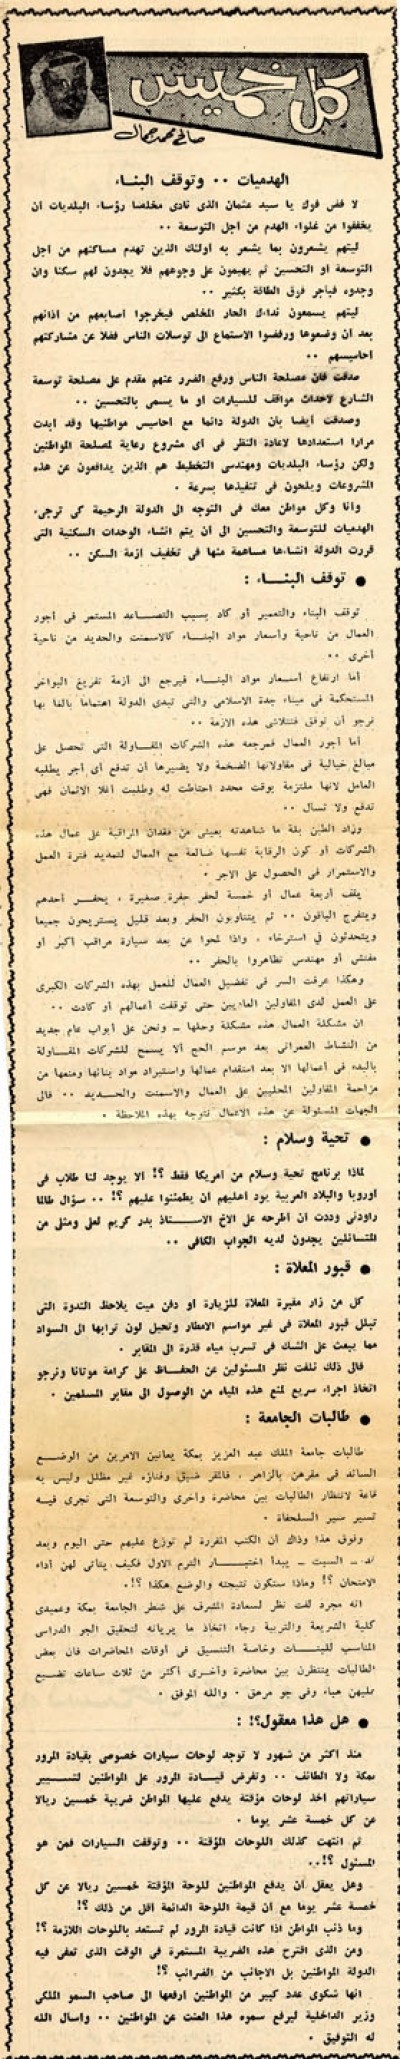 كل خميس
صالح محمد جمال
الهدميات ٠٠ وتوقف البناء
لا فض فوك يا سيد عثمان الذى نادى مخلصا رؤساء البلديات أن
يخففوا من غلواء الهدم من أجل التوسعة ٠٠
ليتهم يشعرون بما يشعر به أولئك الذين تهدم مساكنهم من أجل
التوسعة أو التحسين ثم يهيمون على وجوههم فلا يجدون لهم سكنا وان
وجدوه فبأجر فوق الطاقة بكثير ٠٠
ليتهم يسمعون نداءك الحار المخلص فيخرجوا أصابعهم من آذانهم
بعد أن وضعوها ورفضوا الاستماع الى توسلات الناس فضلا عن مشاركتهم
أحاسيسهم ٠٠
صدقت فان مصلحة الناس ورفع الضرر عنهم مقدم على مصلحة توسعة
الشارع لاحداث مواقف للسيارات أو ما يسمى بالتحسين ٠٠
وصدقت أيضا بأن الدولة دائما مع أحاسيس مواطنيها وقد أبدت
مرارا استعدادها لاعادة النظر فى أى مشروع رعاية لمصلحة المواطنين
ولكن رؤساء البلديات ومهندسى التخطيط هم الذين يدافعون عن هذه
المشروعات ويلحون فى تنفيذها بسرعة ٠
وأنا وكل مواطن معك فى التوجه الى الدولة الرحيمة كى ترجىء
الهدميات للتوسعة والتحسين الى أن يتم انشاء الوحدات السكنية التى
قررت الدولة انشاءها مساهمة منها فى تخفيف أزمة السكن ٠٠
● توقف البناء :
توقف البناء والتعمير أو كاد بسبب التصاعد المستمر فى أجور
العمال من ناحية وأسعار مواد البناء كالاسمنت والحديد من ناحية
أخرى ٠٠
أما ارتفاع أسعار مواد البناء فيرجع الى أزمة تفريغ البواخر
المستحكمة فى ميناء جدة الاسلامى والتى تبدى الدولة اهتماما بالغا بها
نرجو أن توفق فتتلاشى هذه الازمة ٠٠
أما أجور العمال فمرجعه هذه الشركات المقاولة التى تحصل على
مبالغ خيالية فى مقاولاتها الضخمة ولا يضيرها أن تدفع أى أجر يطلبه
العامل لانها ملتزمة بوقت محدد احتاطت له وطلبت أغلا الاثمان فهى
تدفع ولا تسال ٠٠
وزاد الطين بلة ما شاهدته بعينى من فقدان المراقبة على عمال هذه
الشركات أو كون الرقابة نفسها ضالعة مع العمال لتمديد فترة العمل
والاستمرار فى الحصول على الاجر ٠
يقف أربعة عمال أو خمسة لحفر حفرة صغيرة ، يحفر أحدهم
ويتفرج الباقون ٠٠ ثم يتناوبون الحفر وبعد قليل يستريحون جميعا
ويتحدثون فى استرخاء ، واذا لمحوا عن بعد سيارة مراقب أكبر أو
مفتش أو مهندس تظاهروا بالحفر ٠٠
وهكذا عرفت السر فى تفضيل العمال للعمل بهذه الشركات الكبرى
على العمل لدى المقاولين العاديين حتى توقفت أعمالهم أو كادت ٠٠
ان مشكلة العمال هذه مشكلة وحلها ــ ونحن على أبواب عام جديد
من النشاط العمرانى بعد موسم الحج ألا يسمح للشركات المقاولة
بالبدء فى أعمالها الا بعد استقدام عمالها واستيراد مواد بنائها ومنعها من
مزاحمة المقاولين المحليين على العمال والاسمنت والحديد ٠٠ فالى
الجهات المسئولة عن هذه الاعمال نتوجه بهذه الملاحظة ٠
● تحية وسلام :
لماذا برنامج تحية وسلام من أمريكا فقط ؟! ألا يوجد لنا طلاب فى
أوروبا والبلاد العربية يود أهليهم أن يطمئنوا عليهم ؟! ٠٠ سؤال طالما
راودنى وددت أن أطرحه على الاخ الاستاذ بدر كريم لعلى ومثلى من
المتسائلين يجدون لديه الجواب الكافى ٠٠
● قبور المعلاة :
كل من زار مقبرة المعلاة للزيارة أو دفن ميت يلاحظ الندوة التى
تبلل قبور المعلاة فى غير مواسم الامطار وتحيل لون ترابها الى السواد
مما يبعث على الشك فى تسرب مياه قذرة الى المقابر ٠
فالى ذلك نلفت نظر المسئولين عن الحفاظ على كرامة موتانا ونرجو
اتخاذ اجراء سريع لمنع هذه المياه من الوصول الى مقابر المسلمين ٠
● طالبات الجامعة :
طالبات جامعة الملك عبد العزيز بمكة يعانين الامرين من الوضع
السائد فى مقرهن بالزاهر ، فالمقر ضيق وفناؤه غير مظلل وليس به
قاعة لانتظار الطالبات بين محاضرة وأخرى والتوسعة التى تجرى فيه
تسير سير السلحفاة ٠
وفوق هذا وذاك أن الكتب المقررة لم توزع عليهم حتى اليوم وبعد
غد ــ السبت ــ يبدأ اختبار الترم الاول فكيف يتأتى لهن أداء
الامتحان ؟! وماذا ستكون نتيجته والوضع هكذا ؟!٠
انه مجرد لفت نظر لسعادة المشرف على شطر الجامعة بمكة وعميدى
كلية الشريعة والتربية رجاء اتخاذ ما يريانه لتحقيق الجو الدراسى
المناسب للبنات وخاصة التنسيق فى أوقات المحاضرات فان بعض
الطالبات ينتظرن بين محاضرة وأخرى أكثر من ثلاث ساعات تضيع
عليهن هباء وفى جو مرهق ٠ والله الموفق ٠
● هل هذا معقول؟! :
منذ أكثر من شهور لا توجد لوحات سيارات خصوصى بقيادة المرور
بمكة ولا الطائف ٠٠ وتفرض قيادة المرور على المواطنين لتسيير
سياراتهم أخذ لوحات مؤقتة يدفع عليها المواطن ضريبة خمسين ريالا
عن كل خمسة عشر يوما ٠
ثم انتهت كذلك اللوحات المؤقتة ٠٠ وتوقفت السيارات فمن هو
المسئول ؟!٠٠
وهل يعقل أن يدفع المواطنين للوحة المؤقتة خمسين ريالا عن كل
خمسة عشر يوما مع أن قيمة اللوحة الدائمة أقل من ذلك ؟!
وما ذنب المواطن اذا كانت قيادة المرور لم تستعد باللوحات اللازمة ؟!
ومن الذى اقترح هذه الضريبة المستمرة فى الوقت الذى تعفى فيه
الدولة المواطنين بل الاجانب من الضرائب ؟!
انها شكوى عدد كبير من المواطنين أرفعها الى صاحب السمو الملكى
وزير الداخلية ليرفع سموه هذا العنت عن المواطنين ٠٠ وأسال الله
له التوفيق ٠